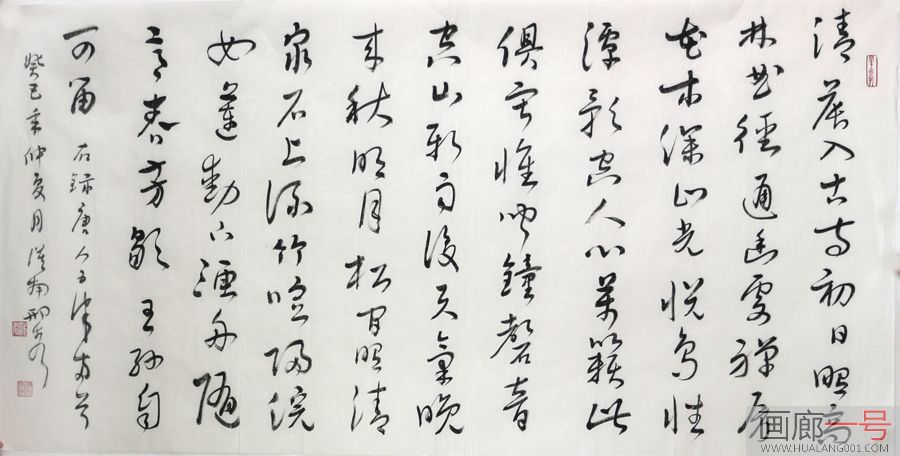 清晨入古寺初日照高
林曲徑通幽處禅房
花木深山光悦鸟性
潭影空人心萬籟此
俱寂惟聞鐘磬音
空山新雨後天氣晚
来秋明月松间照清
泉石上流竹喧归浣
女蓮動下漁舟隨
意春芳歇王孙自
可留 右録唐人五律两首
癸巳年仲夏月
画廊一号
WWW.HUALANG001.COM